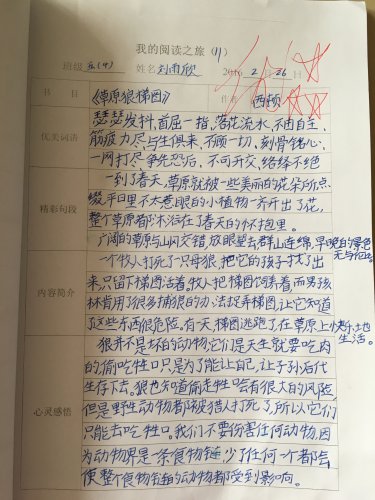 我的阅读之旅（11）
班级 五（4） 姓名 刘雨欣 2016 2 26 日
书目 《草原狼梯图》 作者 西顿
优美词语 瑟瑟发抖，首屈一指，落花流水，不由自主，
筋疲力尽，与生俱来，不顾一切，刻骨铭心，
一网打尽，争先恐后，不可开交，络绎不绝
精彩句段 一到了春天，草原就被一些美丽的花朵所点
缀，平日里不太惹眼的小植物一齐开出了花，
整个草原都沐浴在了春天的怀抱里。
广阔的草原与山风交错，放眼望去群山连绵，早晚的景色
无与伦比。
内容简介 一个牧人打死了一只母狼，把它的孩子找了出
来，只留下梯图活着。牧人把梯图饲养着，而男孩
林肯用了很多捕狼的办法捉弄梯图，让它知道
了这些东西很危险，有一天，梯图逃跑了，在草原上小土地
生活。
心灵感悟 狼并不是坏的动物，它们是天生就要吃肉
的，偷吃牲口只是为了能让自己，让子孙后代
生存下去。狼也知道偷走牲口会有很大的风险
但是野生动物都被猎人打死了，所以它们
只能去吃牲口。我们不要伤害任何动物，因
为动物界是一条食物链，少了任何一个都会
使整个食物链的动物都受到影响。